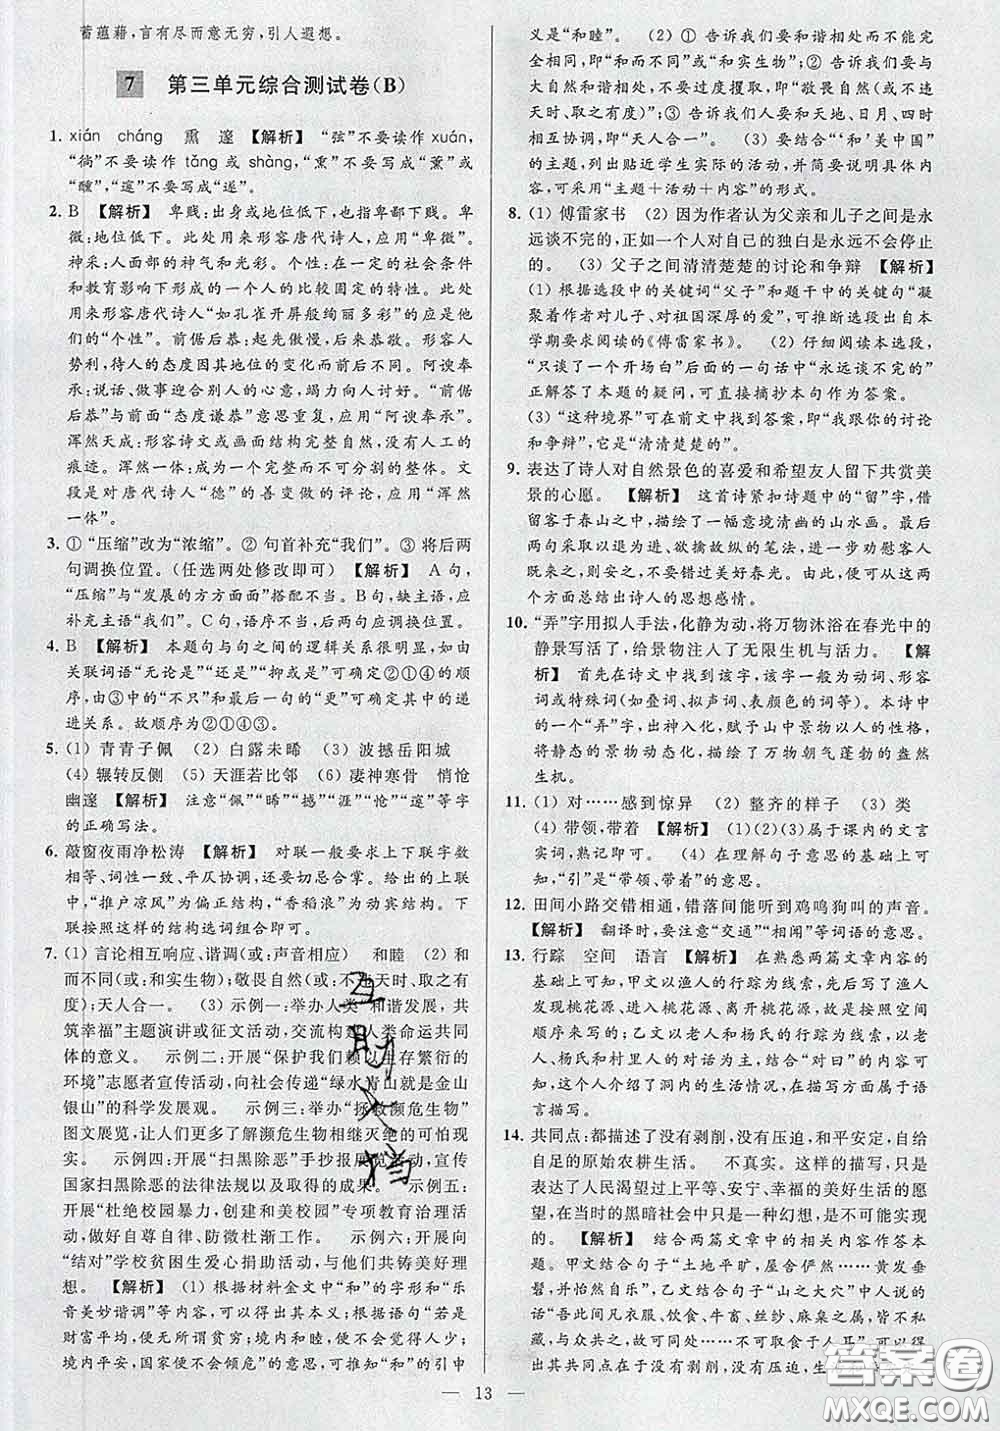 蓄蕴藉，言有尽而意无穷，引人遐想。
7 第三单元综合测试卷（B）
1. xián cháng 熏 邃 【解析】 “弦”不要读作 xuán，
“徜”不要读作 tǎng 或 shàng，“熏”不要写成“薰”或
“醺”，“邃”不要写成“遂”。
2. B 【解析】 卑贱：出身或地位低下，也指卑鄙下贱。卑
微：地位低下。此处用来形容唐代诗人，应用“卑微”。
神采：人面部的神气和光彩。个性：在一定的社会条件
和教育影响下形成的一个人的比较固定的特性。此处
用来形容唐代诗人“如孔雀开屏般绚丽多彩”的应是他
们的“个性”。前倨后恭：起先傲慢，后来恭敬。形容人
势利，待人的态度因其地位的变化而前后不同。阿谀奉
承：说话、做事迎合别人的心意，竭力向人讨好。“前倨
后恭”与前面“态度谦恭”意思重复，应用“阿谀奉承”。
浑然天成：形容诗文或画面结构完整自然，没有人工的
痕迹。浑然一体：成为一个完整而不可分割的整体。文
段是对唐代诗人“德”的善变做的评论，应用“浑然
一体”。
3. ① “压缩”改为“浓缩”。② 句首补充“我们”。③ 将后两
句调换位置。（任选两处修改即可）【解析】 A 句，
“压缩”与“发展的方方面面”搭配不当。B 句，缺主语，应
补充主语“我们”。C 句，语序不当，后两句应调换位置。
4. B 【解析】 本题句与句之间的逻辑关系很明显，如由
关联词语“无论是”“还是”“抑或是”可确定②①④的顺
序，由③中的“不只”和最后一句的“更”可确定其中的递
进关系。故顺序为②①④③。
5. （1）青青子佩 （2）白露未晞 （3）波撼岳阳城
（4）辗转反侧 （5）天涯若比邻 （6）凄神寒骨 悄怆
幽邃 【解析】 注意“佩”“晞”“撼”“涯”“怆”“邃”等字
的正确写法。
6. 敲窗夜雨净松涛 【解析】 对联一般要求上下联字数
相等、词性一致、平仄协调，还要切忌合掌。给出的上联
中，“推户凉风”为偏正结构，“香稻浪”为动宾结构。下
联按照这样的结构选词组合即可。
7. （1）言论相互响应、谐调（或：声音相应） 和睦 （2）和
而不同（或：和实生物）；敬畏自然（或：不违天时、取之有
度）；天人合一。 （3）示例一：举办“人类 和谐发展，共
筑幸福”主题演讲或征文活动，交流构建人类命运共同
体的意义。 示例二：开展“保护我们赖以生存繁衍的
环境”志愿者宣传活动，向社会传递“绿水青山就是金山
银山”的科学发展观。 示例三：举办“拯救濒危生物”
图文展览，让人们更多了解濒危生物相继灭绝的可怕现
实。 示例四：开展“扫黑除恶”手抄报展览活动，宣传
国家扫黑除恶的法律法规以及取得的成果。 示例五：
开展“杜绝校园暴力，创建和美校园”专项教育治理活
动，做到自尊自律、防微杜渐工作。 示例六：开展城乡
“结对”学校贫困生爱心捐助活动，与他们共铸美好理
想。 【解析】 （1）根据材料金文中“和”的字形和“乐
音美妙谐调”等内容，可以得出其本义；根据语句“若是
财富平均，便无所谓贫穷；境内和睦，便不会觉得人少；
境内安宁，国家便不会倾危”的意思，可推知“和”的引申
义是“和睦”。 （2）① 告诉我们人与人相处不能完全
完全相同，即“和而不同”（或“和实生物”）；② 告诉我们
要和谐相处，不要过度攫取，即“敬畏自然”（或“不违
天时、取之有度”）；③ 告诉我们要和天地、日月、四时
相互协调，即“天人合一”。 （3）要结合“‘和’美中国”
的主题，列出贴近学生实际的活动，并简要说明具体内
容，可采用“主题＋活动＋内容”的形式。
8. （1）傅雷家书 （2）因为作者认为父亲和儿子之间是永
远谈不完的，正如一个人对自己的独白是永远不会停止
的。 （3）父子之间清清楚楚的讨论和争辩 【解析】
（1）根据选段中的关键词“父子”和题干中的关键句“凝
聚着作者对儿子、对祖国深厚的爱”，可推断选段出自本
学期要求阅读的《傅雷家书》。 （2）仔细阅读本选段，
“只谈了一个开场白”后面的一句话中“永远谈不完的”
正解答了本题的疑问，可直接摘抄本句作为答案。
（3）“这种境界”可在前文中找到答案，即“我跟你的讨论
和争辩”，它是“清清楚楚的”。
9. 表达了诗人对自然景色的喜爱和希望友人留下共赏美
景的心愿。 【解析】 这首诗紧扣诗题中的“留”字，借
留客于春山之中，描绘了一幅意境清幽的山水画。最后
两句采取以退为进、欲擒故纵的笔法，进一步劝慰客人
既来之，则安之，不要错过美好春光。由此，便可从这两
个方面总结出诗人的思想感情。
10. “弄”字用拟人手法，化静为动，将万物沐浴在春光中的
静景写活了，给景物注入了无限生机与活力。 【解
析】 首先在诗文中找到该字，该字一般为动词、形容
词或特殊词（如叠词、拟声词、表颜色的词）。本诗中
的一个“弄”字，出神入化，赋予山中景物以人的性格，
将静态的景物动态化，展现了万物朝气蓬勃的盎然
生机。
11. （1）对……感到惊异 （2）整齐的样子 （3）类
（4）带领，带着 【解析】 （1）（2）（3）属于课内的文言
实词，熟记即可。 （4）在理解句子意思的基础上可
知，“引”是“带领、带着”的意思。
12. 田间小路交错相通，错落间能听到鸡鸣狗叫的声音。
【解析】 翻译时，要注意“交通”“相闻”等词语的意思。
13. 行踪 空间 语言 【解析】 在熟悉两篇文章内容的
基础上，可以发现：甲文以渔人的行踪为线索，写了渔人
发现桃花源、进入桃花源、离开桃花源，应是按照空间
顺序来写的；乙文以老人和杨氏的行踪为线索，以老
人、杨氏和村里人的对话为主，结合“对曰”的内容可
知，这个别人介绍了洞内的生活情况，在描写方面属于语
言描写。
14. 共同点：都描述了没有剥削，没有压迫，和平安定，自给
自足的原始农耕生活。 不真实。这样的描写，只是
表达了人民渴望过上平等、安宁、幸福的美好生活的愿
望，在当时的黑暗社会中只是一种幻想，是不可能实现
的。 【解析】 结合两篇文章中的相关内容作答本
题。甲文结合句子“土地平旷，屋舍俨然……黄发垂
髫，并怡然自乐”，乙文结合句子“山之大穴”中人说的
话“吾此间凡衣服、饮食、牛畜、丝纩、麻枲之属，皆不私
藏，与众共之……不可取食于人耳”，可以得出
其共同点包括没有剥削，没有压迫，生
互助文档
答案圈
MXQE.COM
— 13 —